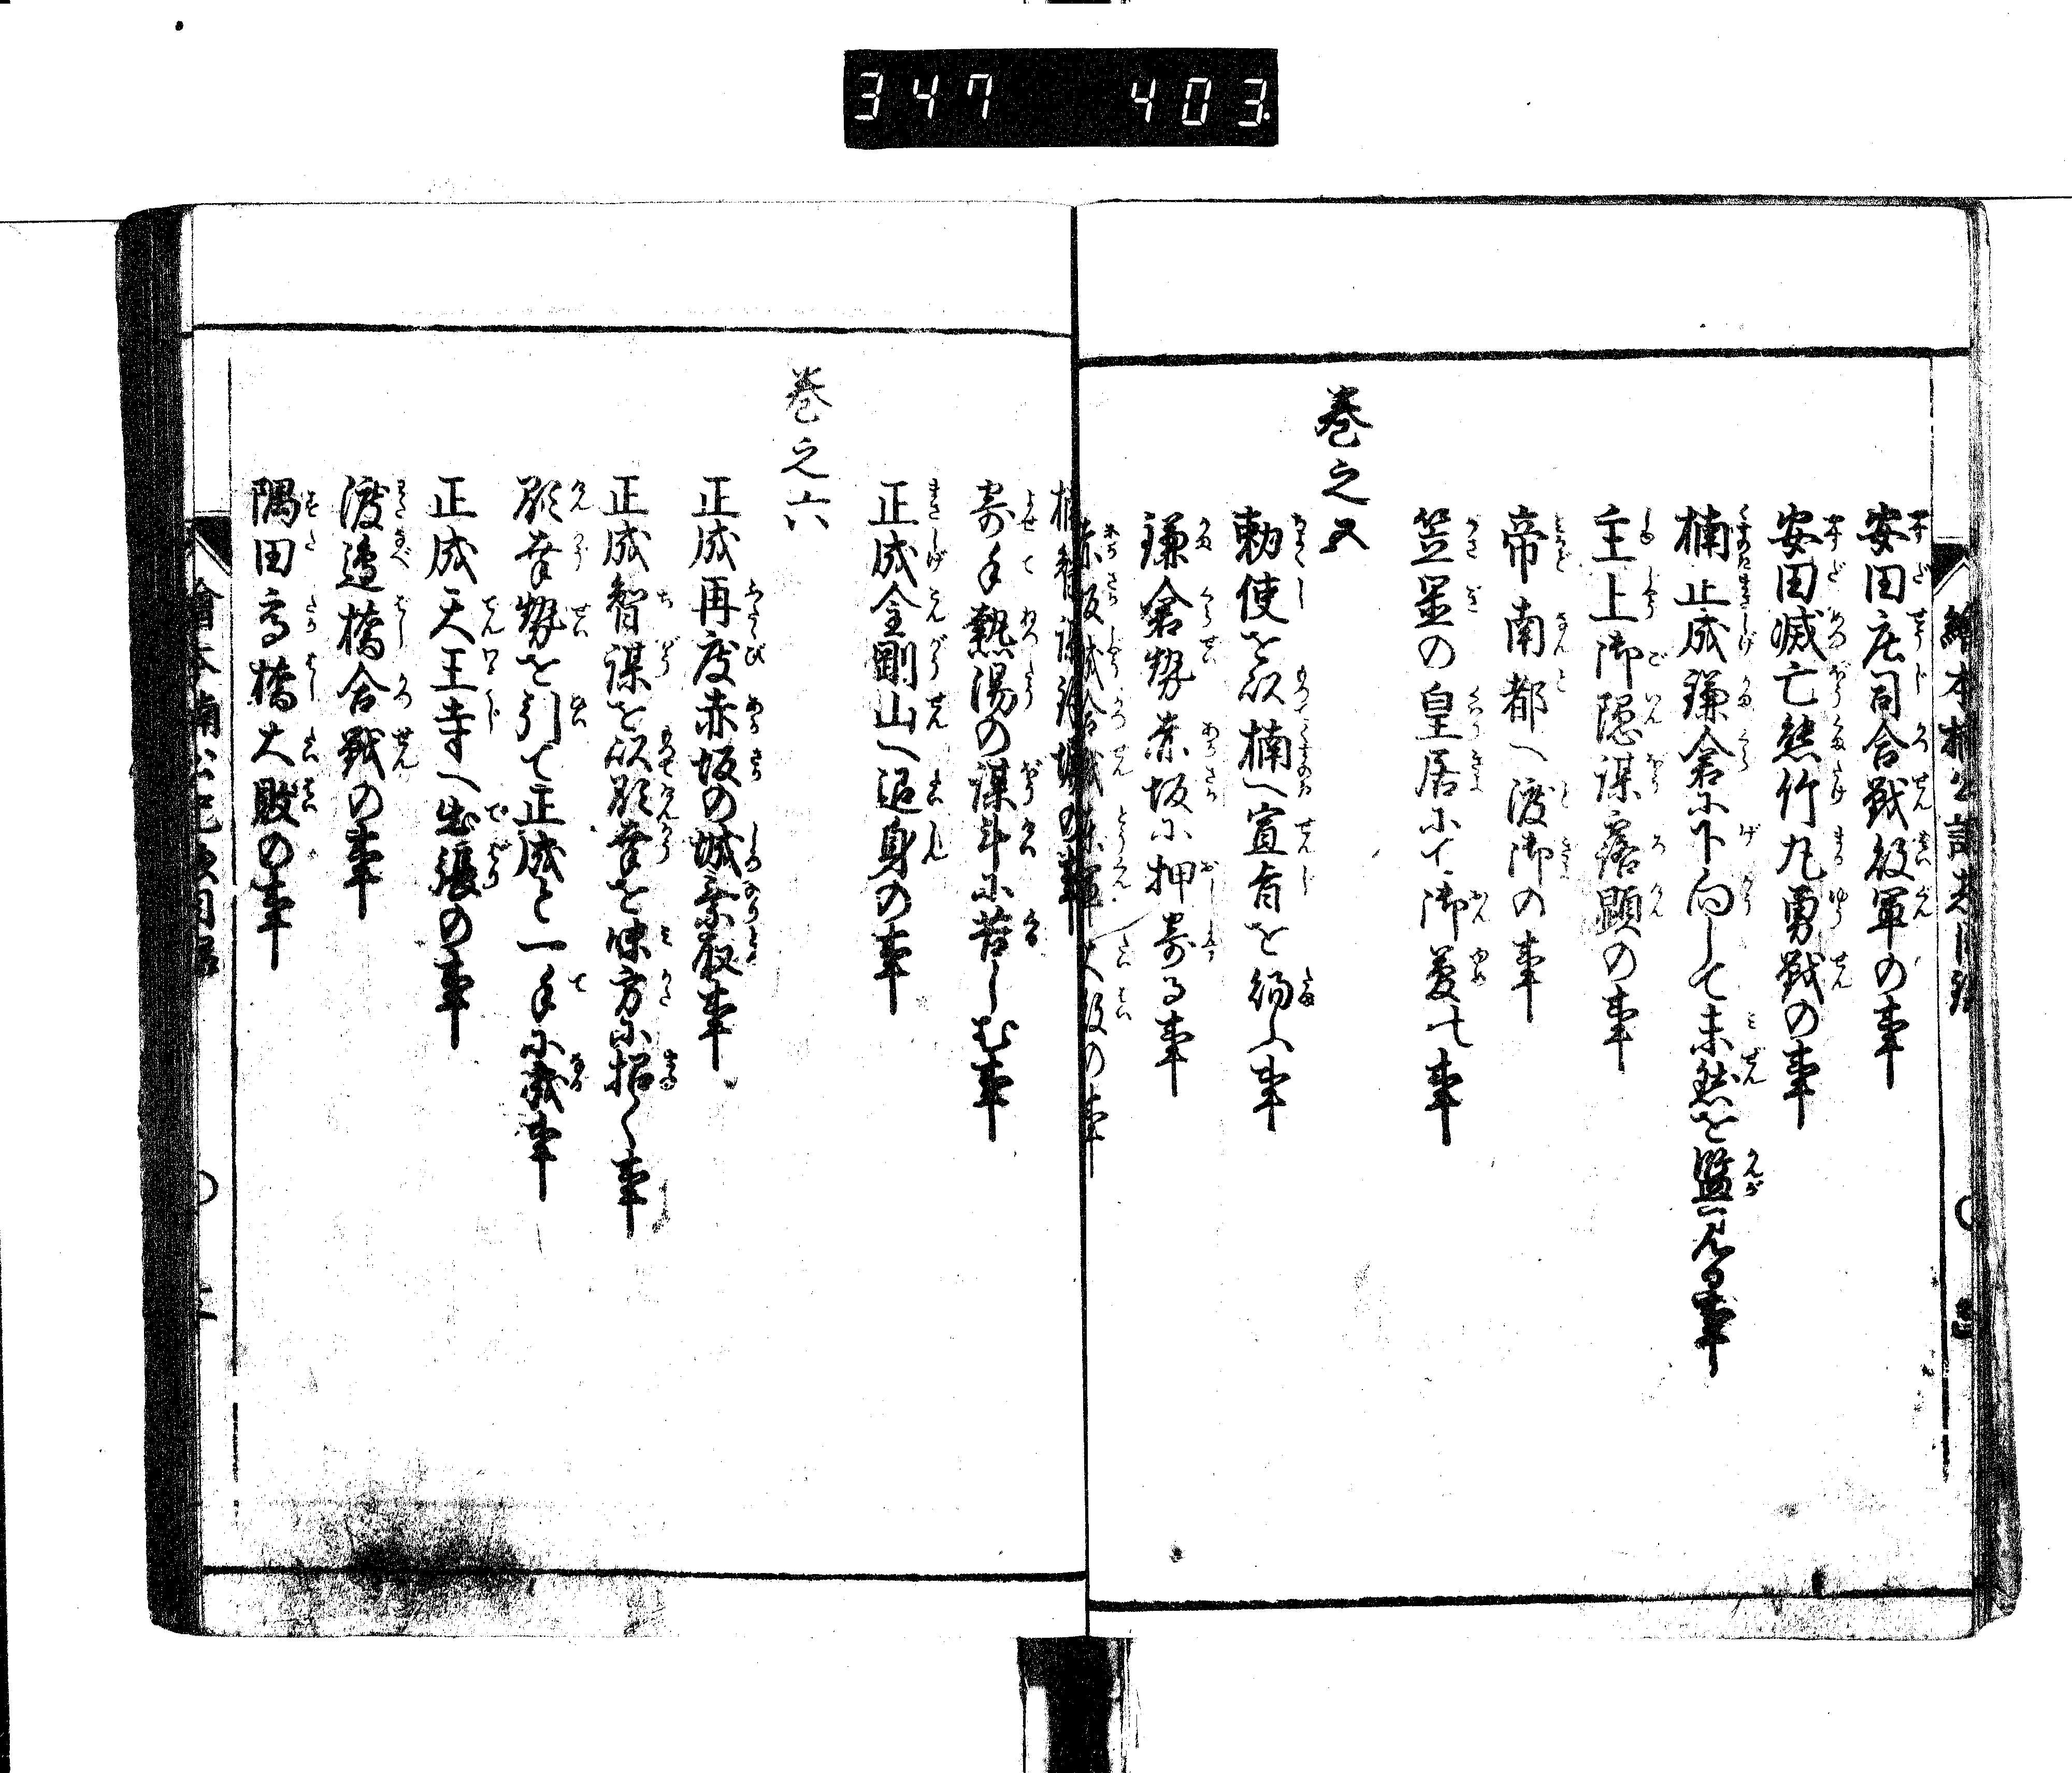 347 403
安田庄司合戦後軍の事
安田滅亡熊竹丸勇戦の事
楠正成鎌倉に下向して未然を監見る事
主上御隠謀露顕の事
帝南都へ渡御の事
笠置の皇居にて御夢の事
巻之五
勅使を以楠へ宣旨を給ふ事
鎌倉勢赤坂に押寄る事
赤坂城合戦東軍大敗の事
楠智謀の事
寄手熱湯の謀計に苦しむ事
正成金剛山へ遁身の事
巻之六
正成再度赤坂の城乗取事
正成智謀を以恩幸を味方に招く事
恩幸勢を引て正成と一手に成事
正成天王寺へ出張の事
渡邉橋合戦の事
隅田高橋大敗の事